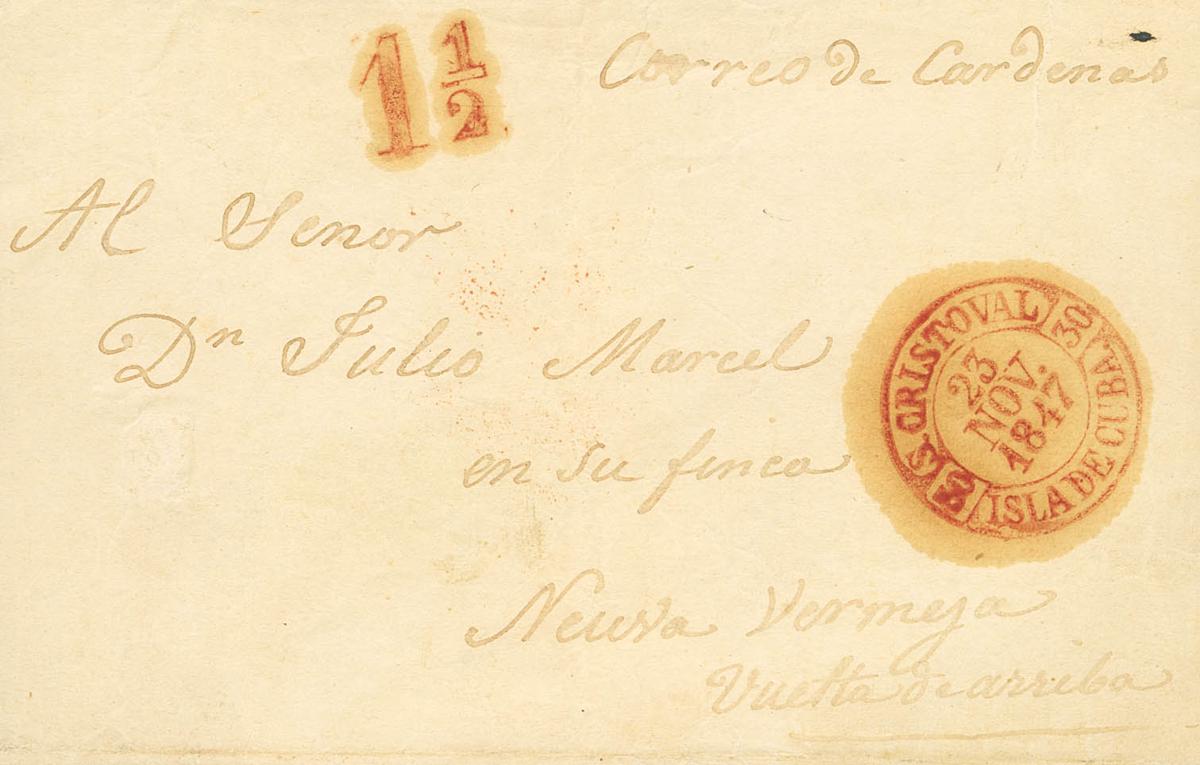 1 1/2
Correo de Cardenas
Al Senor
Dn Julio Marcel
en su finca
Neuva Vermeja
Vuelta de arriba
S. CRISTOVAL 30
ISLA DE CUBA
23
NOV.
1847